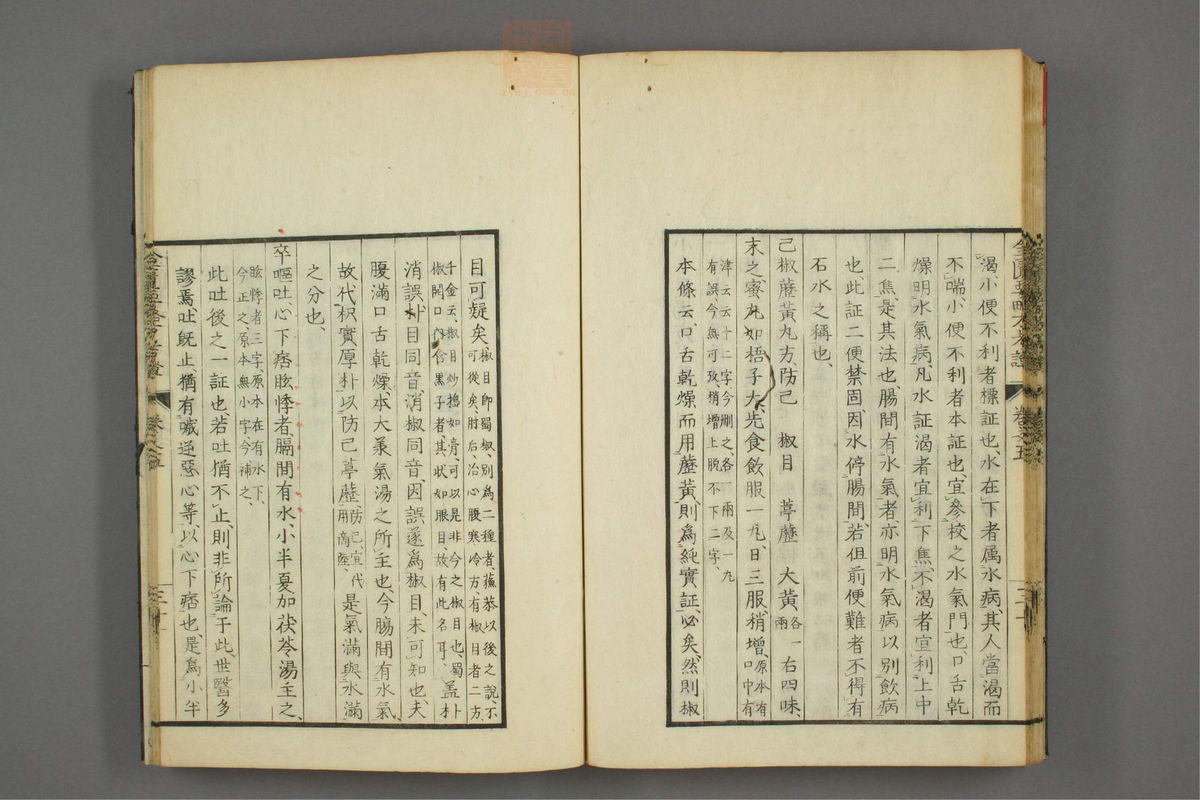 渴、小便不利者標証也、水在下者属水病、其人當渴而
不喘、小便不利者本証也、宜參校之水氣門也、口舌乾
燥明水氣病、凡水証渴者宜利下焦、不渴者宜利上中
二焦、是其法也、腸間有水氣者、亦明水氣病以別飲病
也、此証二便禁固、因水停腸間、若但前便難者不得有
石水之稱也、
己椒藶黃丸方、防己 椒目 葶藶 大黃各一兩 右四味、
末之、蜜丸如梧子大、先食飲服一丸、日三服、稍增、原本有口中有
津云云十二字今刪之、各一兩及一丸
有誤、今無可攷、稍增上脫不下二字、
本條云、口舌乾燥而用藶黃、則爲純實証必矣、然則椒
目可疑矣、椒目即蜀椒、別爲二種者、蘓恭以後之說、不
可從矣、肘后、治心腹寒冷方有椒目者二方、
千金云、椒目炒搗如膏、可以見非今之椒目也、蜀
椒開口内含黒子者、其狀如眼目、故有此名耳、盖朴
消誤
目同音、消椒同音、因誤遂爲椒目、未可知也、夫
腹滿口舌乾燥、本大
氣湯之所主也、今腸間有水氣
故代枳實厚朴以防己葶藶、防已宜代用商陸、是氣滿與水滿
之分也、
卒嘔吐、心下痞、眩悸者、膈間有水、小半夏加茯苓湯主之、
眩悸者三字、原本在有水下、
今正之、原本無小字今補之、
此吐後之一証也、若吐猶不止、則非所論于此、世醫多
謬焉、吐既止、猶有噦逆惡心等、以心下痞也、是爲小半